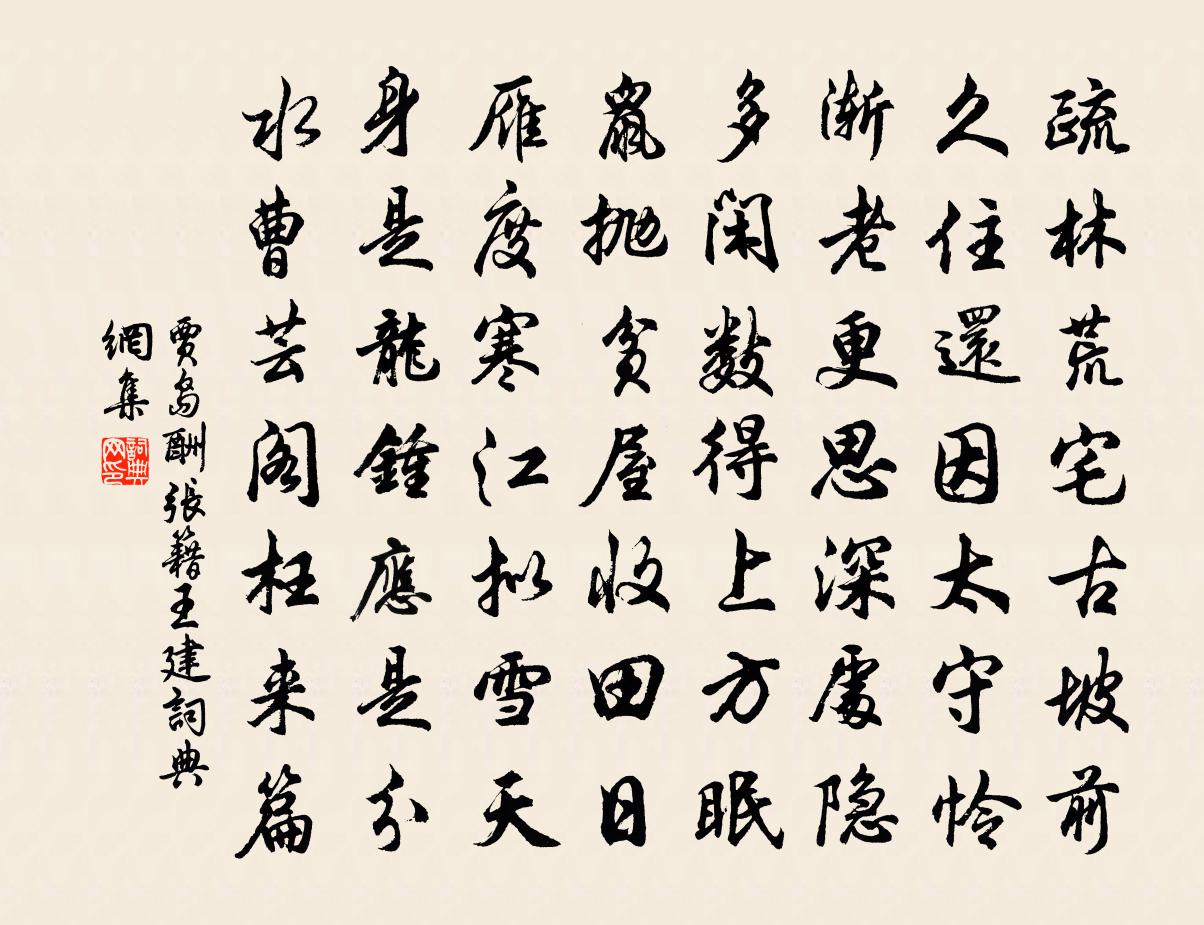 疏林荒宅古坡前
久住還因太守怜
渐老更思深處隐
多闲数得上方眠
鼠抛貧屋收田日
雁度寒江拟雪天
身是龍鍾應是分
水曹芸阁枉来篇
賈島酬張籍王建詞典
網集
詞典網印